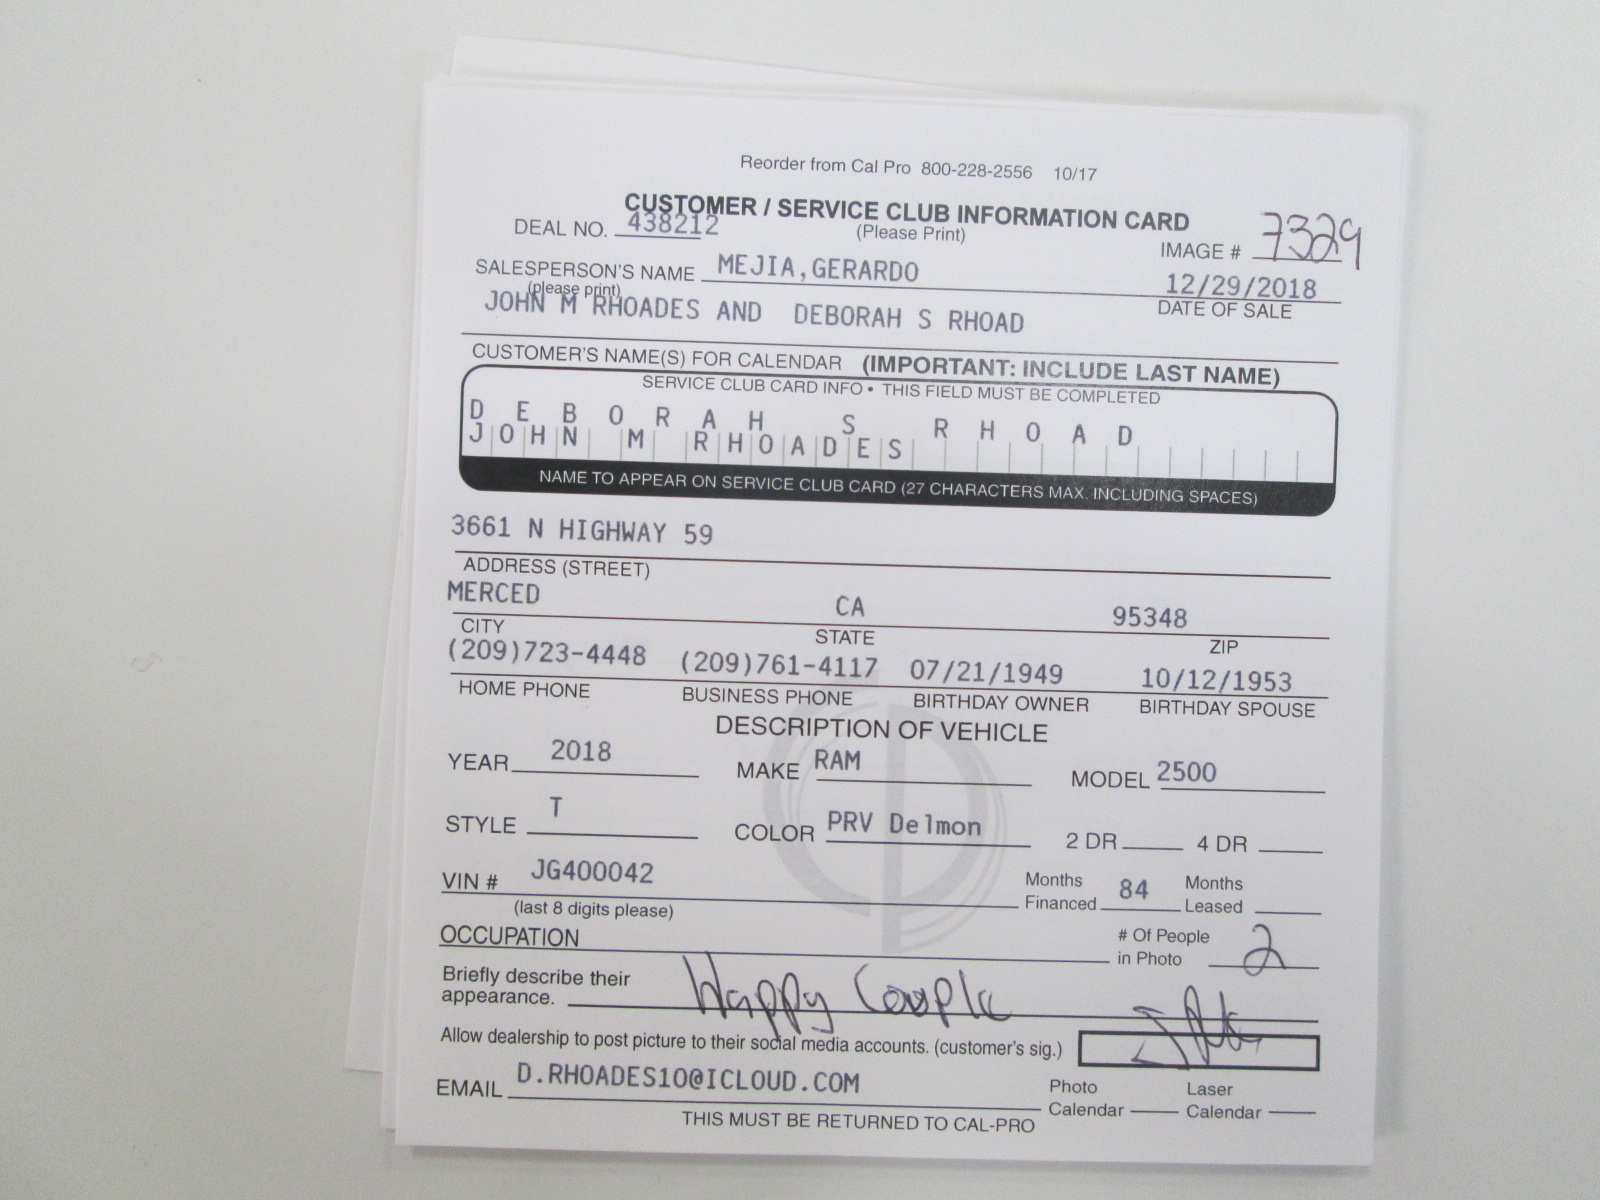 Reorder from Cal Pro 800-228-2556 10/17
CUSTOMER / SERVICE CLUB INFORMATION CARD
DEAL NO. 438212 (Please Print) IMAGE # 7329
SALESPERSON'S NAME MEJIA,GERARDO 12/29/2018
(please print) DATE OF SALE
JOHN M RHOADES AND DEBORAH S RHOAD
CUSTOMER'S NAME(S) FOR CALENDAR (IMPORTANT: INCLUDE LAST NAME)
SERVICE CLUB CARD INFO • THIS FIELD MUST BE COMPLETED
DEBORAH S RHOAD
JOHN M RHOADES
NAME TO APPEAR ON SERVICE CLUB CARD (27 CHARACTERS MAX. INCLUDING SPACES)
3661 N HIGHWAY 59
ADDRESS (STREET)
MERCED CA 95348
CITY STATE ZIP
(209)723-4448 (209)761-4117 07/21/1949 10/12/1953
HOME PHONE BUSINESS PHONE BIRTHDAY OWNER BIRTHDAY SPOUSE
DESCRIPTION OF VEHICLE
YEAR 2018 MAKE RAM MODEL 2500
STYLE T COLOR PRV Delmon 2 DR 4 DR
VIN # JG400042 Months Financed 84 Months Leased
(last 8 digits please)
OCCUPATION # Of People in Photo 2
Briefly describe their appearance. Happy Couple
Allow dealership to post picture to their social media accounts. (customer's sig.)
EMAIL D.RHOADES10@ICLOUD.COM Photo Calendar Laser Calendar
THIS MUST BE RETURNED TO CAL-PRO